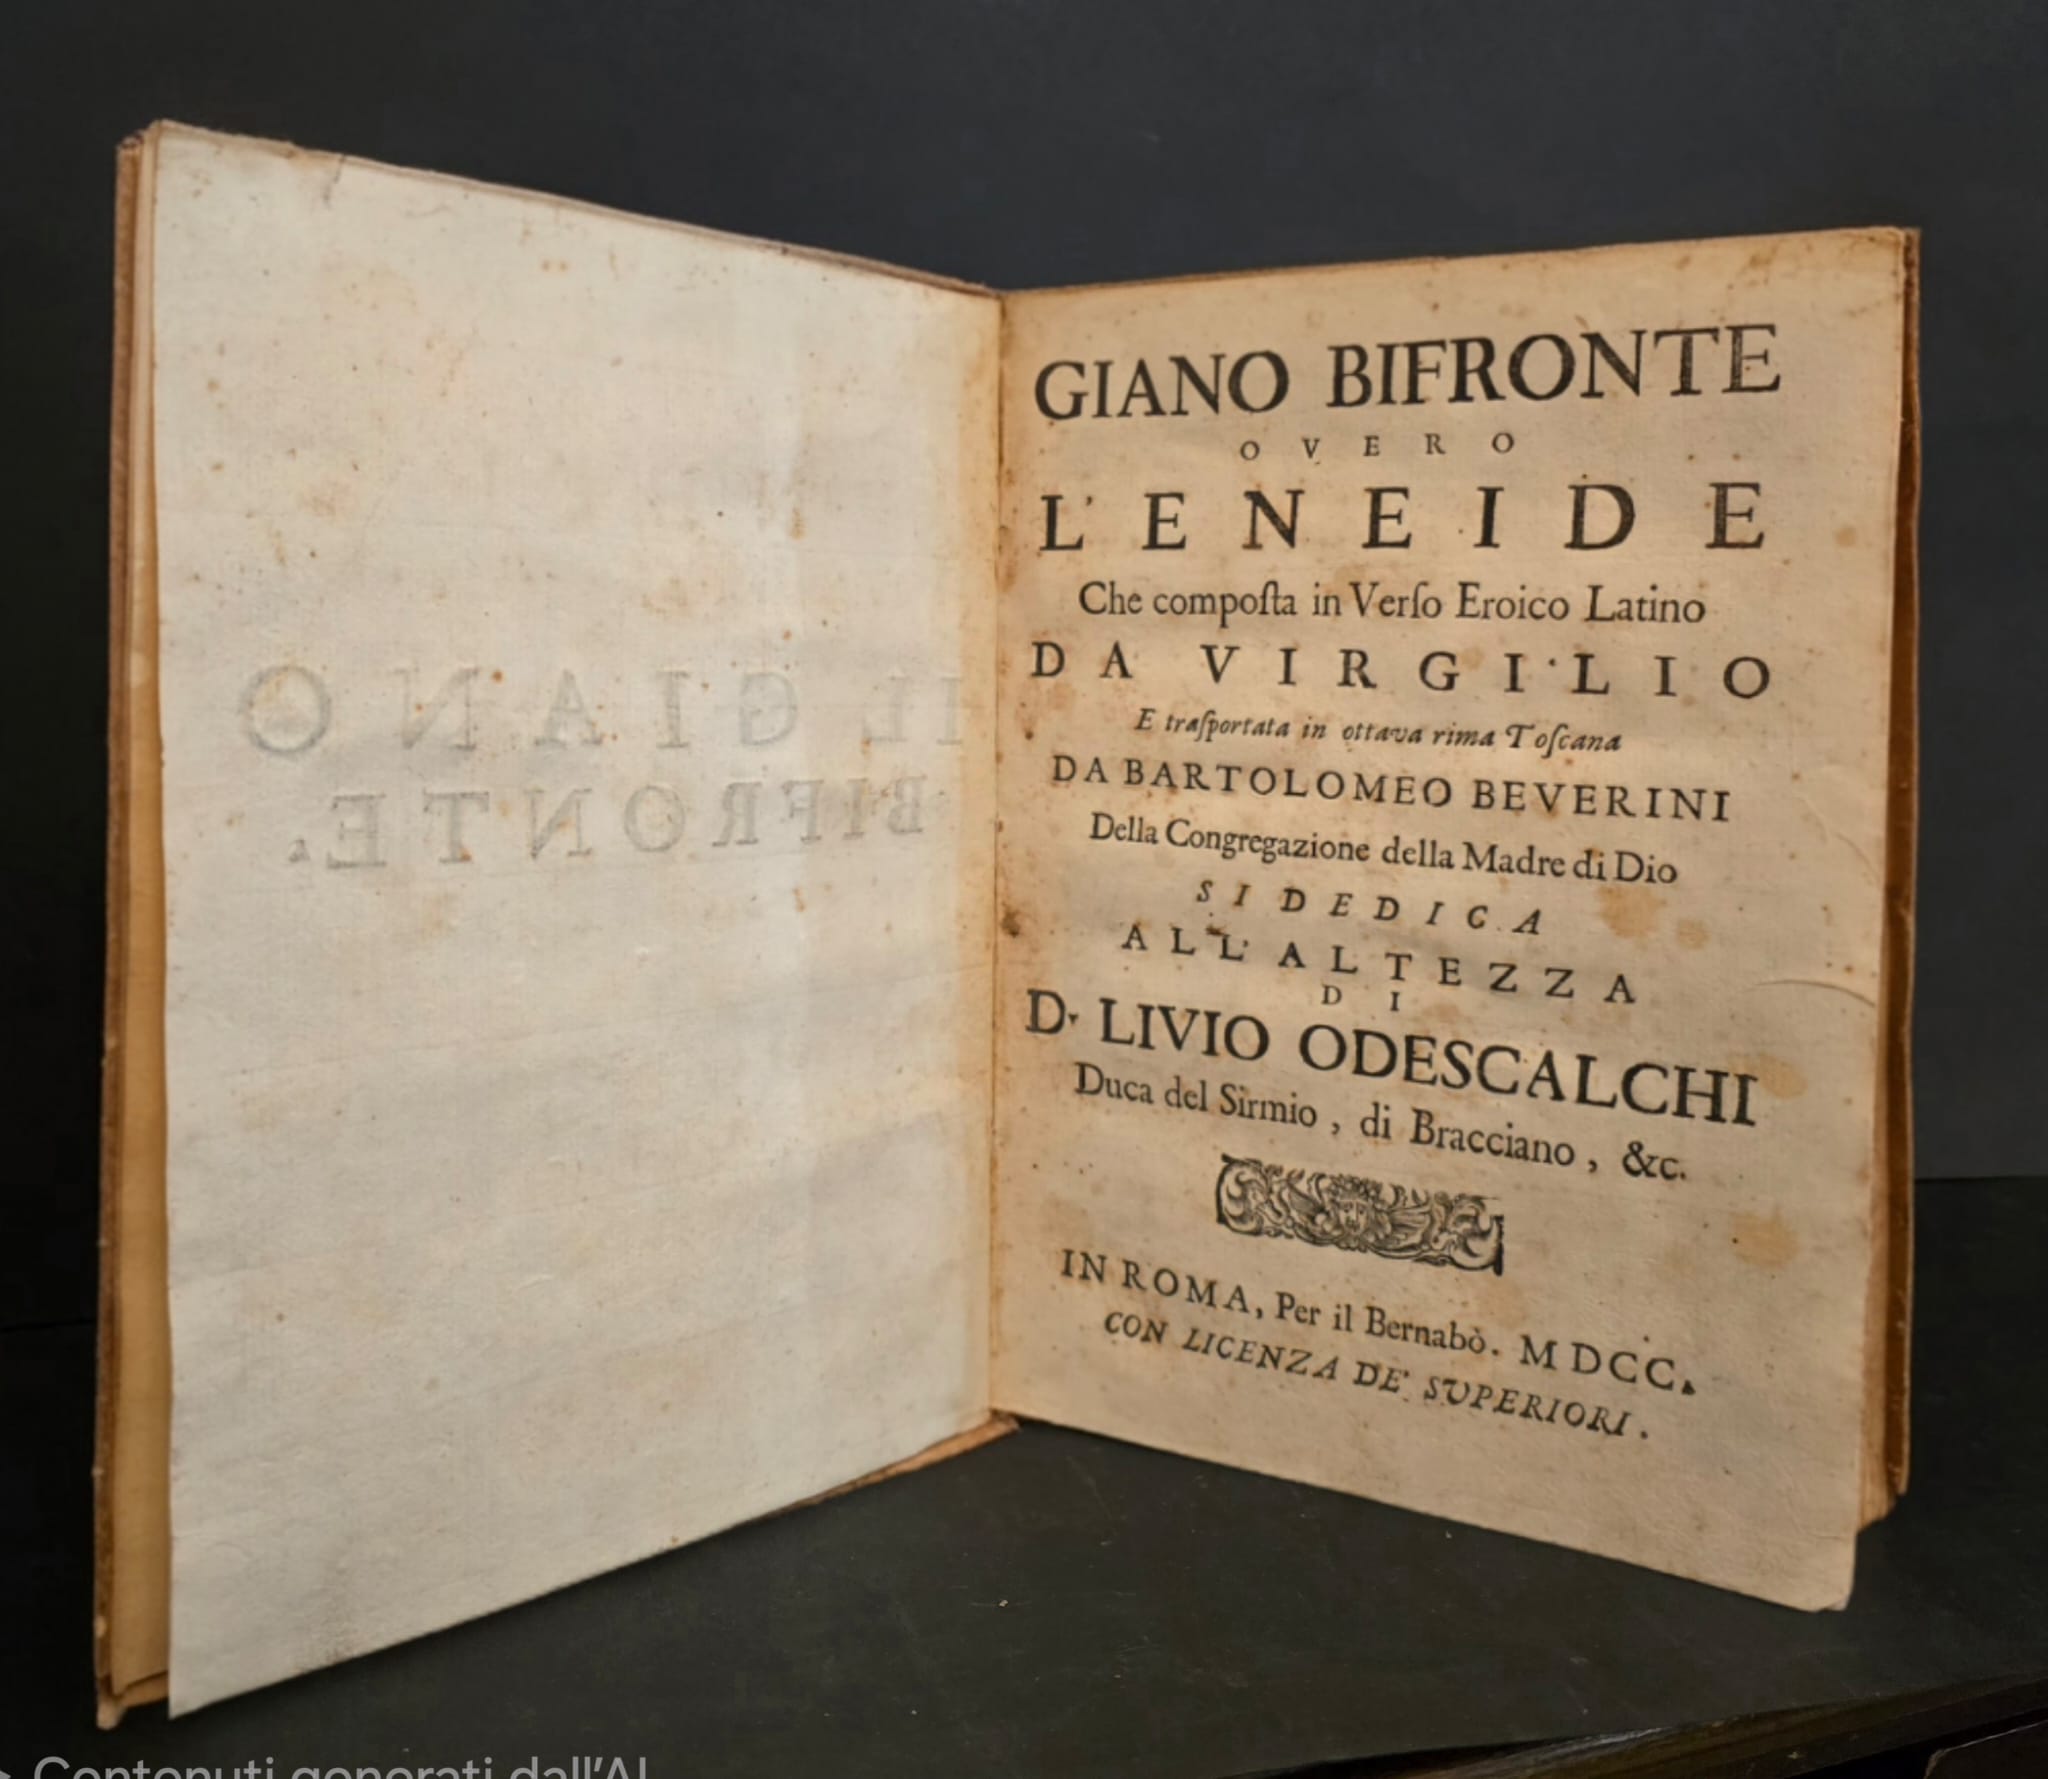 IL GIANO
BIFRONTE.
GIANO BIFRONTE
OVERO
L'ENEIDE
Che compoſta in Verſo Eroico Latino
DA VIRGILIO
E traſportata in ottava rima Toſcana
DA BARTOLOMEO BEVERINI
Della Congregazione della Madre di Dio
SI DEDICA
ALL'ALTEZZA
DI
D. LIVIO ODESCALCHI
Duca del Sirmio, di Bracciano, &c.
IN ROMA, Per il Bernabò. MDCC.
CON LICENZA DE' SUPERIORI.
Contenuti generati dall'AI